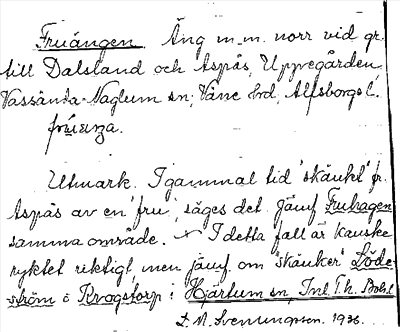 Fruängen Äng m.m. norr vid gr.
till Dalsland och Aspås, Uppregården,
Vassända-Naglum sn, Väne hrd, Älfsborgs l.
Utmark. I gammal tid 'skänkt' fr.
Aspås av en 'fru', säges det. Jämf. Fruhagen
samma område. I detta fall är kanske
ryktet riktigt, men jämf. om 'skänker' Löde-
ström i Krogstorp i Hjärtum sn, Inl. T. h. Bohl.
Svenungsson. 1936.